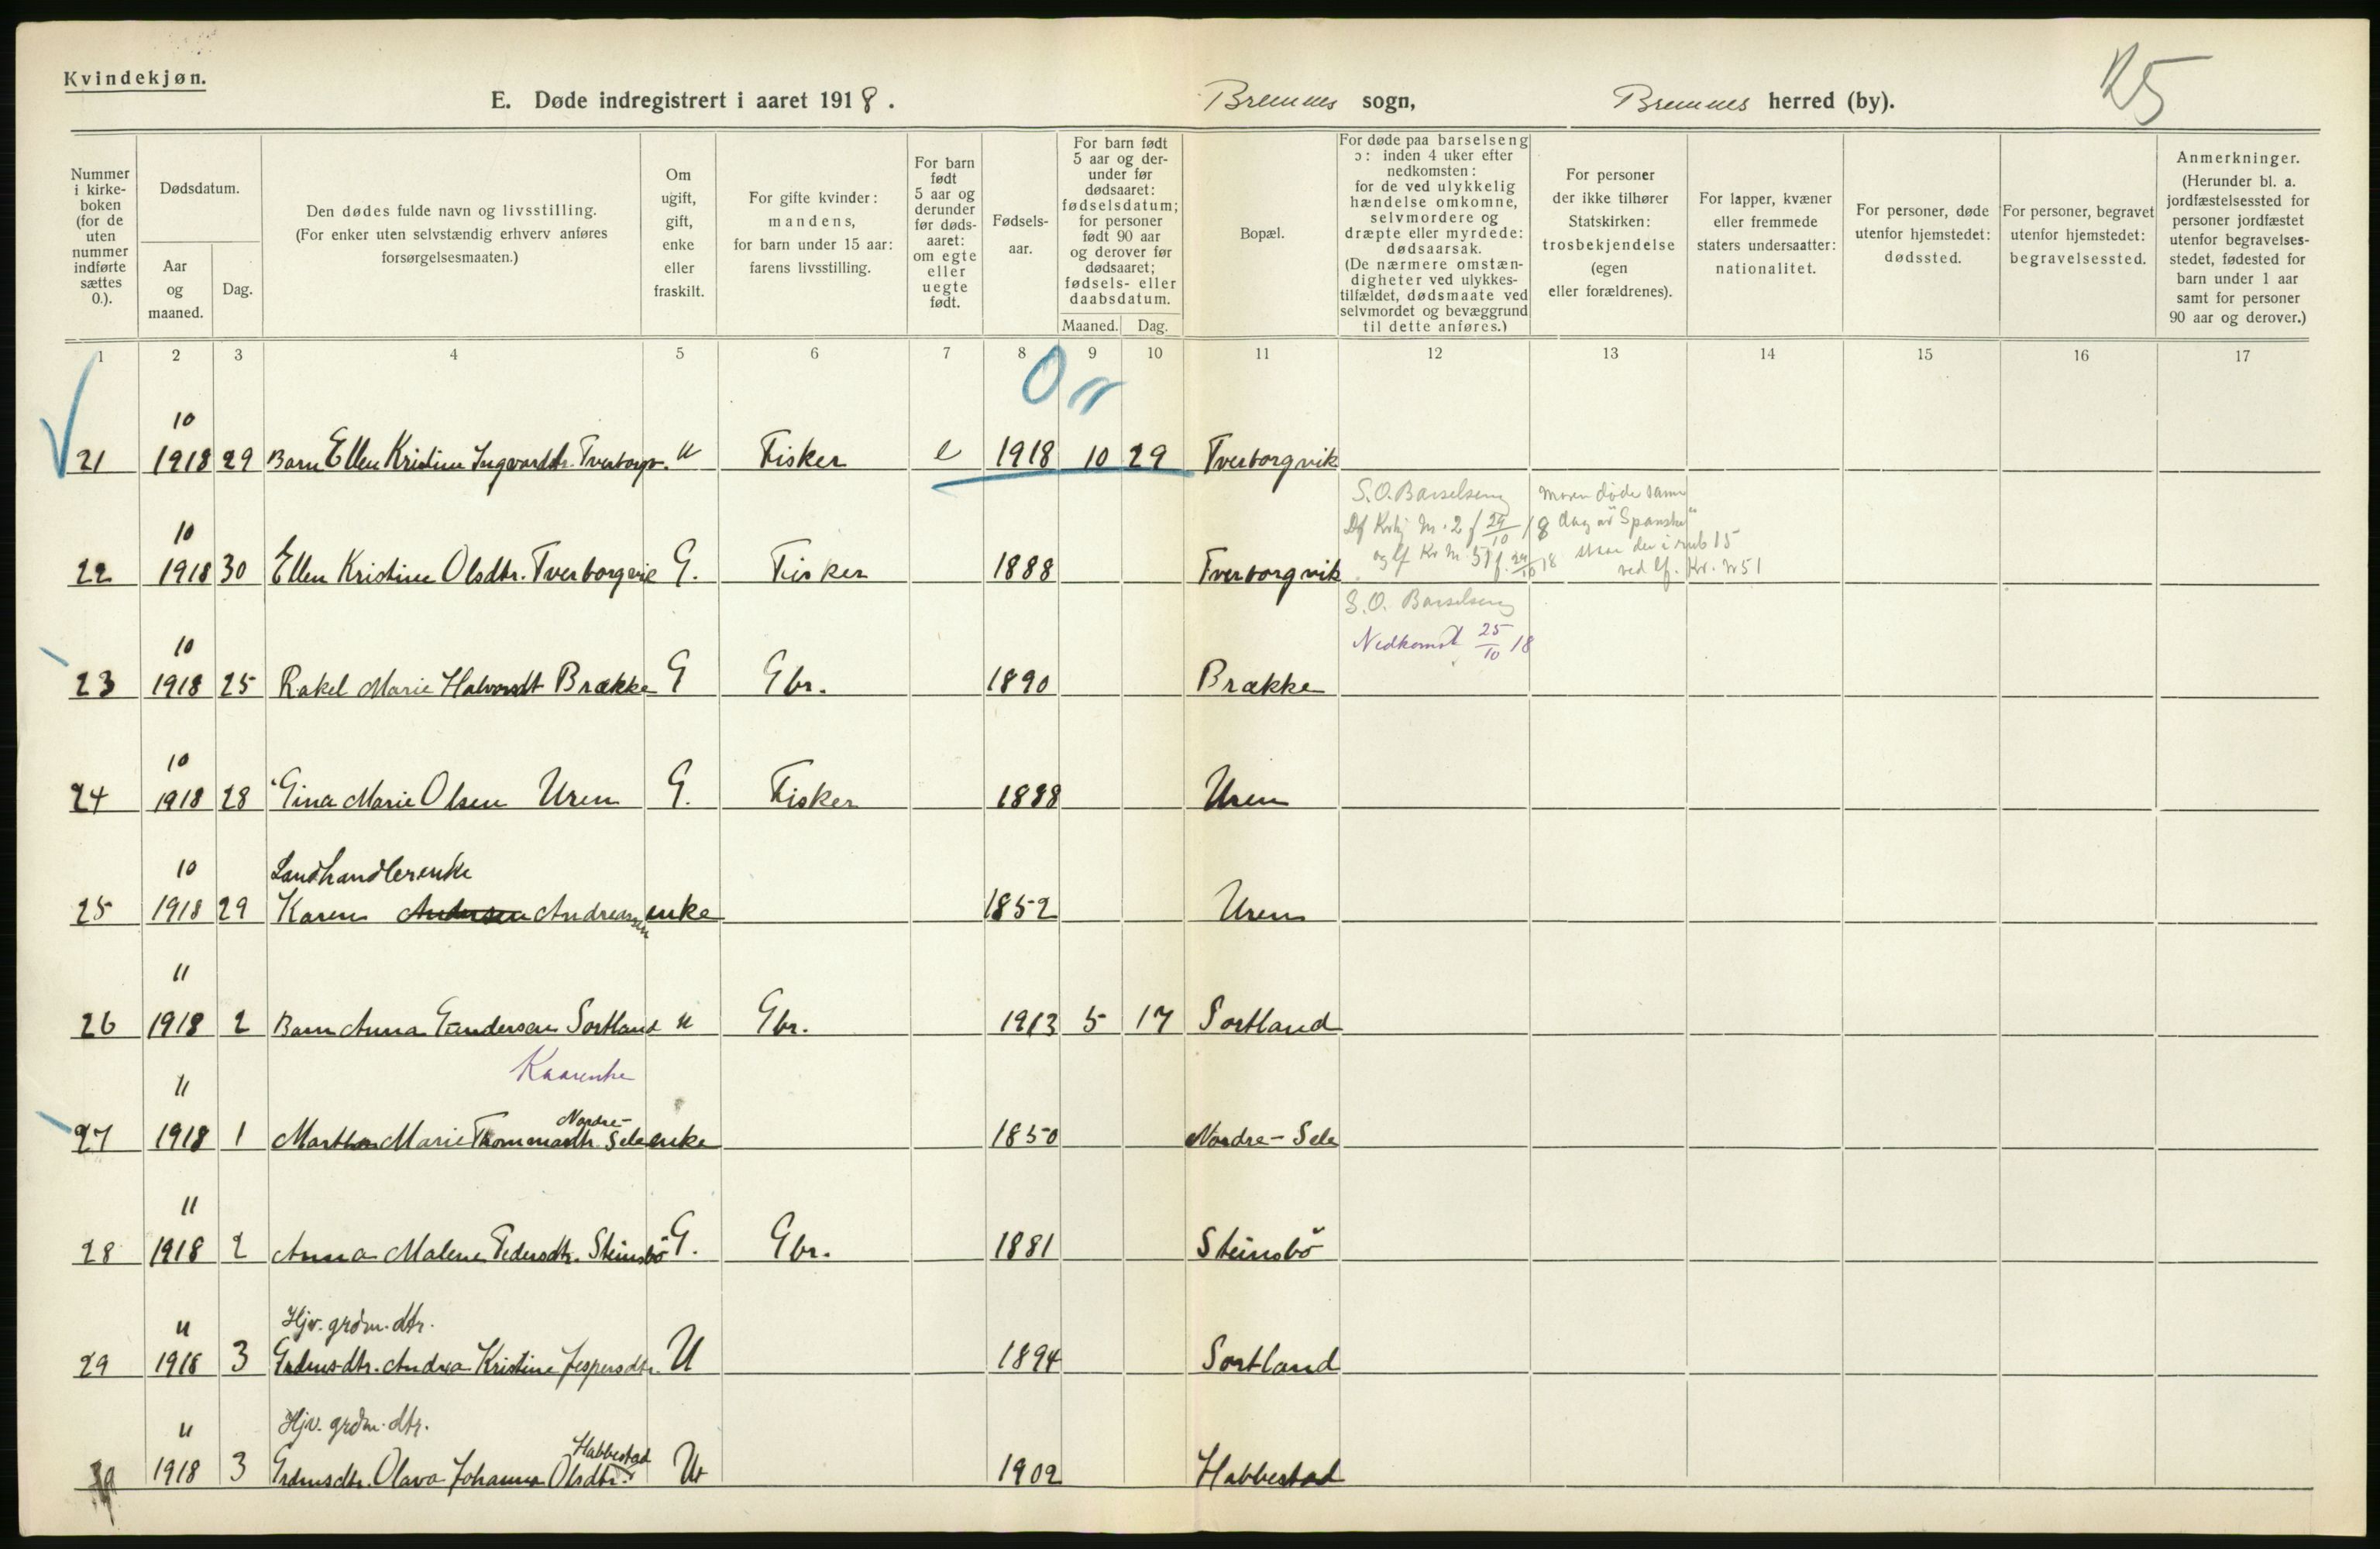 Kvindekjøn.
E. Døde indregistrert i aaret 1918.
Bremnes sogn,
Bremnes herred (by).
25
Nummer i kirke-boken (for de uten nummer indførte sættes 0.).
Dødsdatum.
Aar og maaned.
Dag.
Den dødes fulde navn og livsstilling. (For enker uten selvstændig erhverv anføres forsørgelsesmaaten.)
Om ugift, gift, enke eller fraskilt.
For gifte kvinder: mandens, for barn under 15 aar: farens livsstilling.
For barn født 5 aar og derunder før døds-aaret: om egte eller uegte født.
Fødsels-aar.
For barn født 5 aar og der-under før dødsaaret: fødselsdatum; for personer født 90 aar og derover før dødsaaret; fødsels- eller daabsdatum.
Maaned.
Dag.
Bopæl.
For døde paa barselseng ɔ: inden 4 uker efter nedkomsten: for de ved ulykkelig hændelse omkomne, selvmordere og dræpte eller myrdede: dødsaarsak. (De nærmere omstæn-digheter ved ulykkes-tilfældet, dødsmaate ved selvmordet og bevæggrund til dette anføres.)
For personer der ikke tilhører Statskirken: trosbekjendelse (egen eller forældrenes).
For lapper, kvæner eller fremmede staters undersaatter: nationalitet.
For personer, døde utenfor hjemstedet: dødssted.
For personer, begravet utenfor hjemstedet: begravelsessted.
Anmerkninger. (Herunder bl. a. jordfæstelsessted for personer jordfæstet utenfor begravelses-stedet, fødested for barn under 1 aar samt for personer 90 aar og derover.)
1 2 3 4 5 6 7 8 9 10 11 12 13 14 15 16 17
10
21 1918 29 Barn Ellen Kristine Ingvardtr. Tverborgv. u Fisker e 1918 10 29 Tverborgvik
S.O. Barselseng moren døde samme
10
22 1918 30 Ellen Kristine Olsdtr. Tverborgvik G. Fisker 1888 Tverborgvik
S.O. Barselseng
Nedkomst 25/10 18
10
23 1918 25 Rakel Marie Halvorsdt Brække G Gbr. 1890 Brække
10
24 1918 28 Gina Marie Olsen Uren G. Fisker 1888 Uren
10 Landhandlerenke
25 1918 29 Karen Andersen Andreassen enke 1852 Uren
11
26 1918 2 Barn Anna Gundersen Sortland u Gbr. 1913 5 17 Sortland
Kaarenke
11 Nordre-
27 1918 1 Martha Marie Thommasdtr. Sele enke 1850 Nordre-Sele
11
28 1918 2 Anna Malene Pedersdtr. Steinsbö G. Gbr. 1881 Steinsbö
11 Hjv. grdm. dtr.
29 1918 3 Grdmsdtr. Andrea Kristine Jespersdtr. U 1894 Sortland
11 Hjv. grdm. dtr.
Habbestad
1918 3 Grdmsdtr. Olava Johanna Olsdtr. U 1902 Habbestad